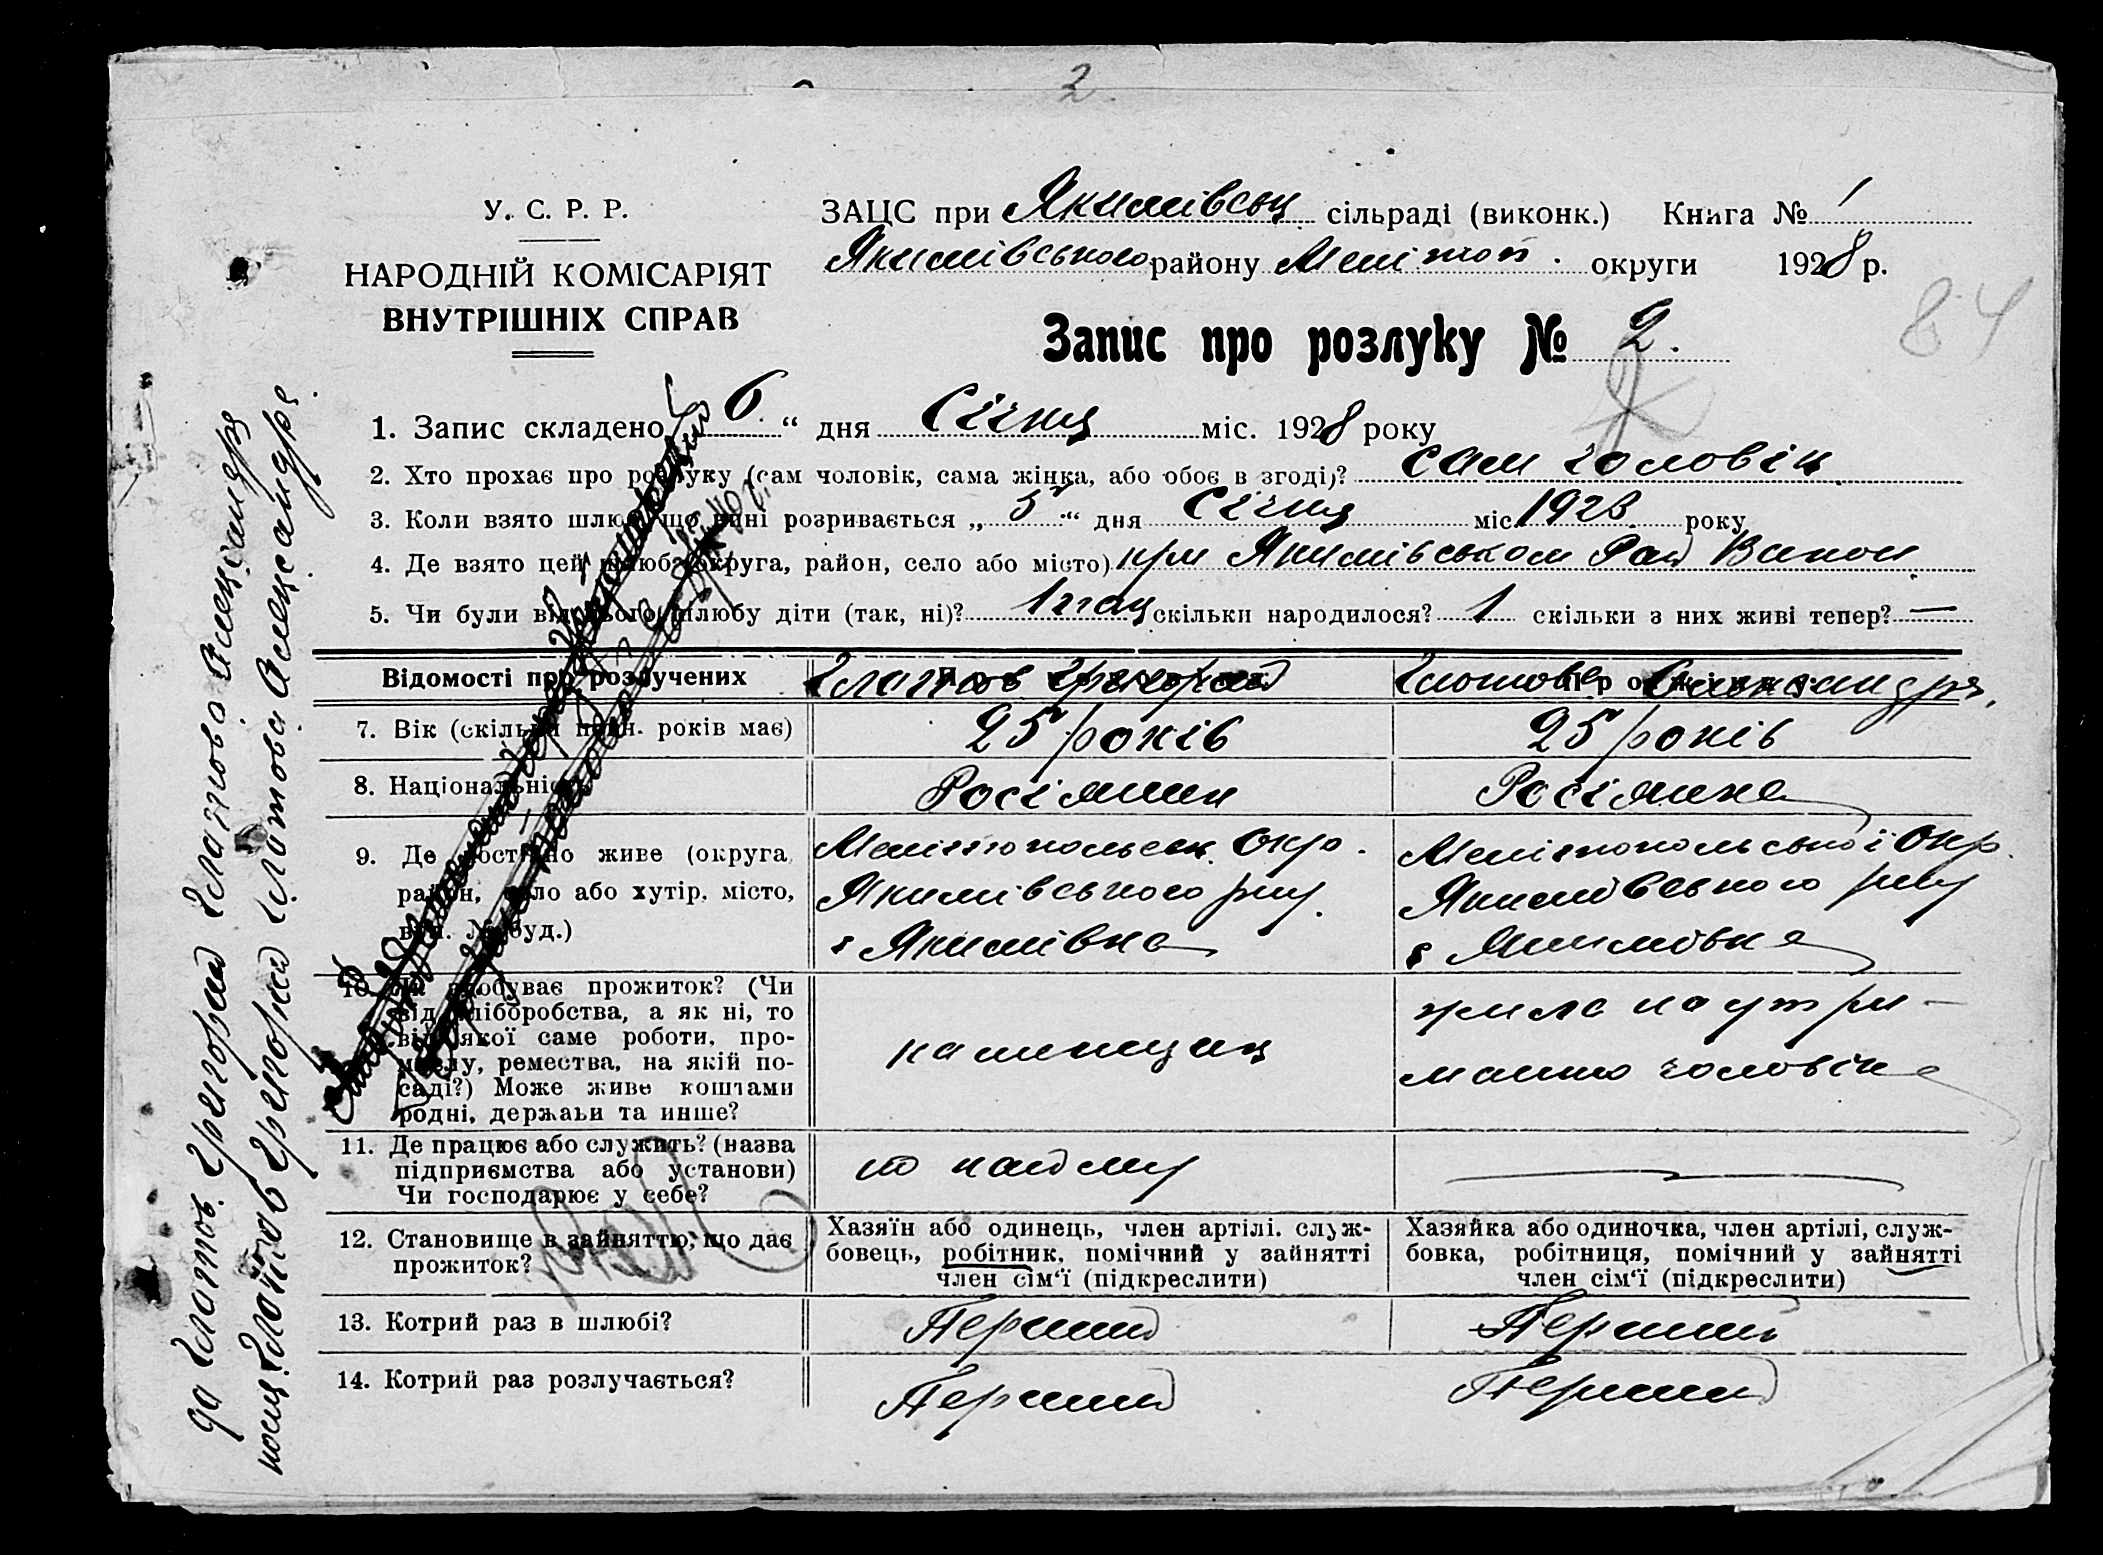 2
У. С. Р. Р.
НАРОДНІЙ КОМІСАРІЯТ
ВНУТРІШНІХ СПРАВ
ЗАЦС при Якимівськ сільраді (виконк.) Книга № 1
Якимівського району Мелітоп. округи 1928 р.
84
Запис про розлуку № 2.
1. Запис складено „ 6 “ дня Січня міс. 1928 року
2. Хто прохає про розлуку (сам чоловік, сама жінка, або обоє в згоді)? сам чоловік
3. Коли взято шлюб, що нині розривається „ 5 “ дня Січня міс. 1923 року
4. Де взято цей шлюб (округа, район, село або місто) при Якимівськом Рай Викон.
5. Чи були від цього шлюбу діти (так, ні)? 1 так скільки народилося? 1 скільки з них живі тепер? —
Відомості про розлучених Про чоловіка Глотов Григорий Про жінку Глотова Александра
7. Вік (скільки повн. років має) 25 років 25 років
8. Національність Росіянин Росіянка
9. Де постійно живе (округа, район, село або хутір, місто, вул. № буд.)
Мелітопольськ. Окр. Якимівського р-ну с Якимівка
Мелітопольської Окр. Якимівського р-ну с Якимівка
10. Як здобуває прожиток? (Чи
від хліборобства, а як ні, то
від якої саме роботи, про-
мислу, ремества, на якій по-
саді?) Може живе коштами
родні, держави та инше?
каменщик
жила на утри-
манню чоловіка
11. Де працює або служить? (назва
підприємства або установи)
Чи господарює у себе?
по найму —
12. Становище в зайняттю, що дає
прожиток?
Хазяїн або одинець, член артілі. служ-
бовець, робітник, помічний у зайнятті
член сім‘ї (підкреслити)
Хазяйка або одиночка, член артілі, служ-
бовка, робітниця, помічний у зайнятті
член сім‘ї (підкреслити)
13. Котрий раз в шлюбі? Перший Перший
14. Котрий раз розлучається? Перший Перший
да Глотов Григорий Глотова Александра
Глотов Григорий Глотова Александра